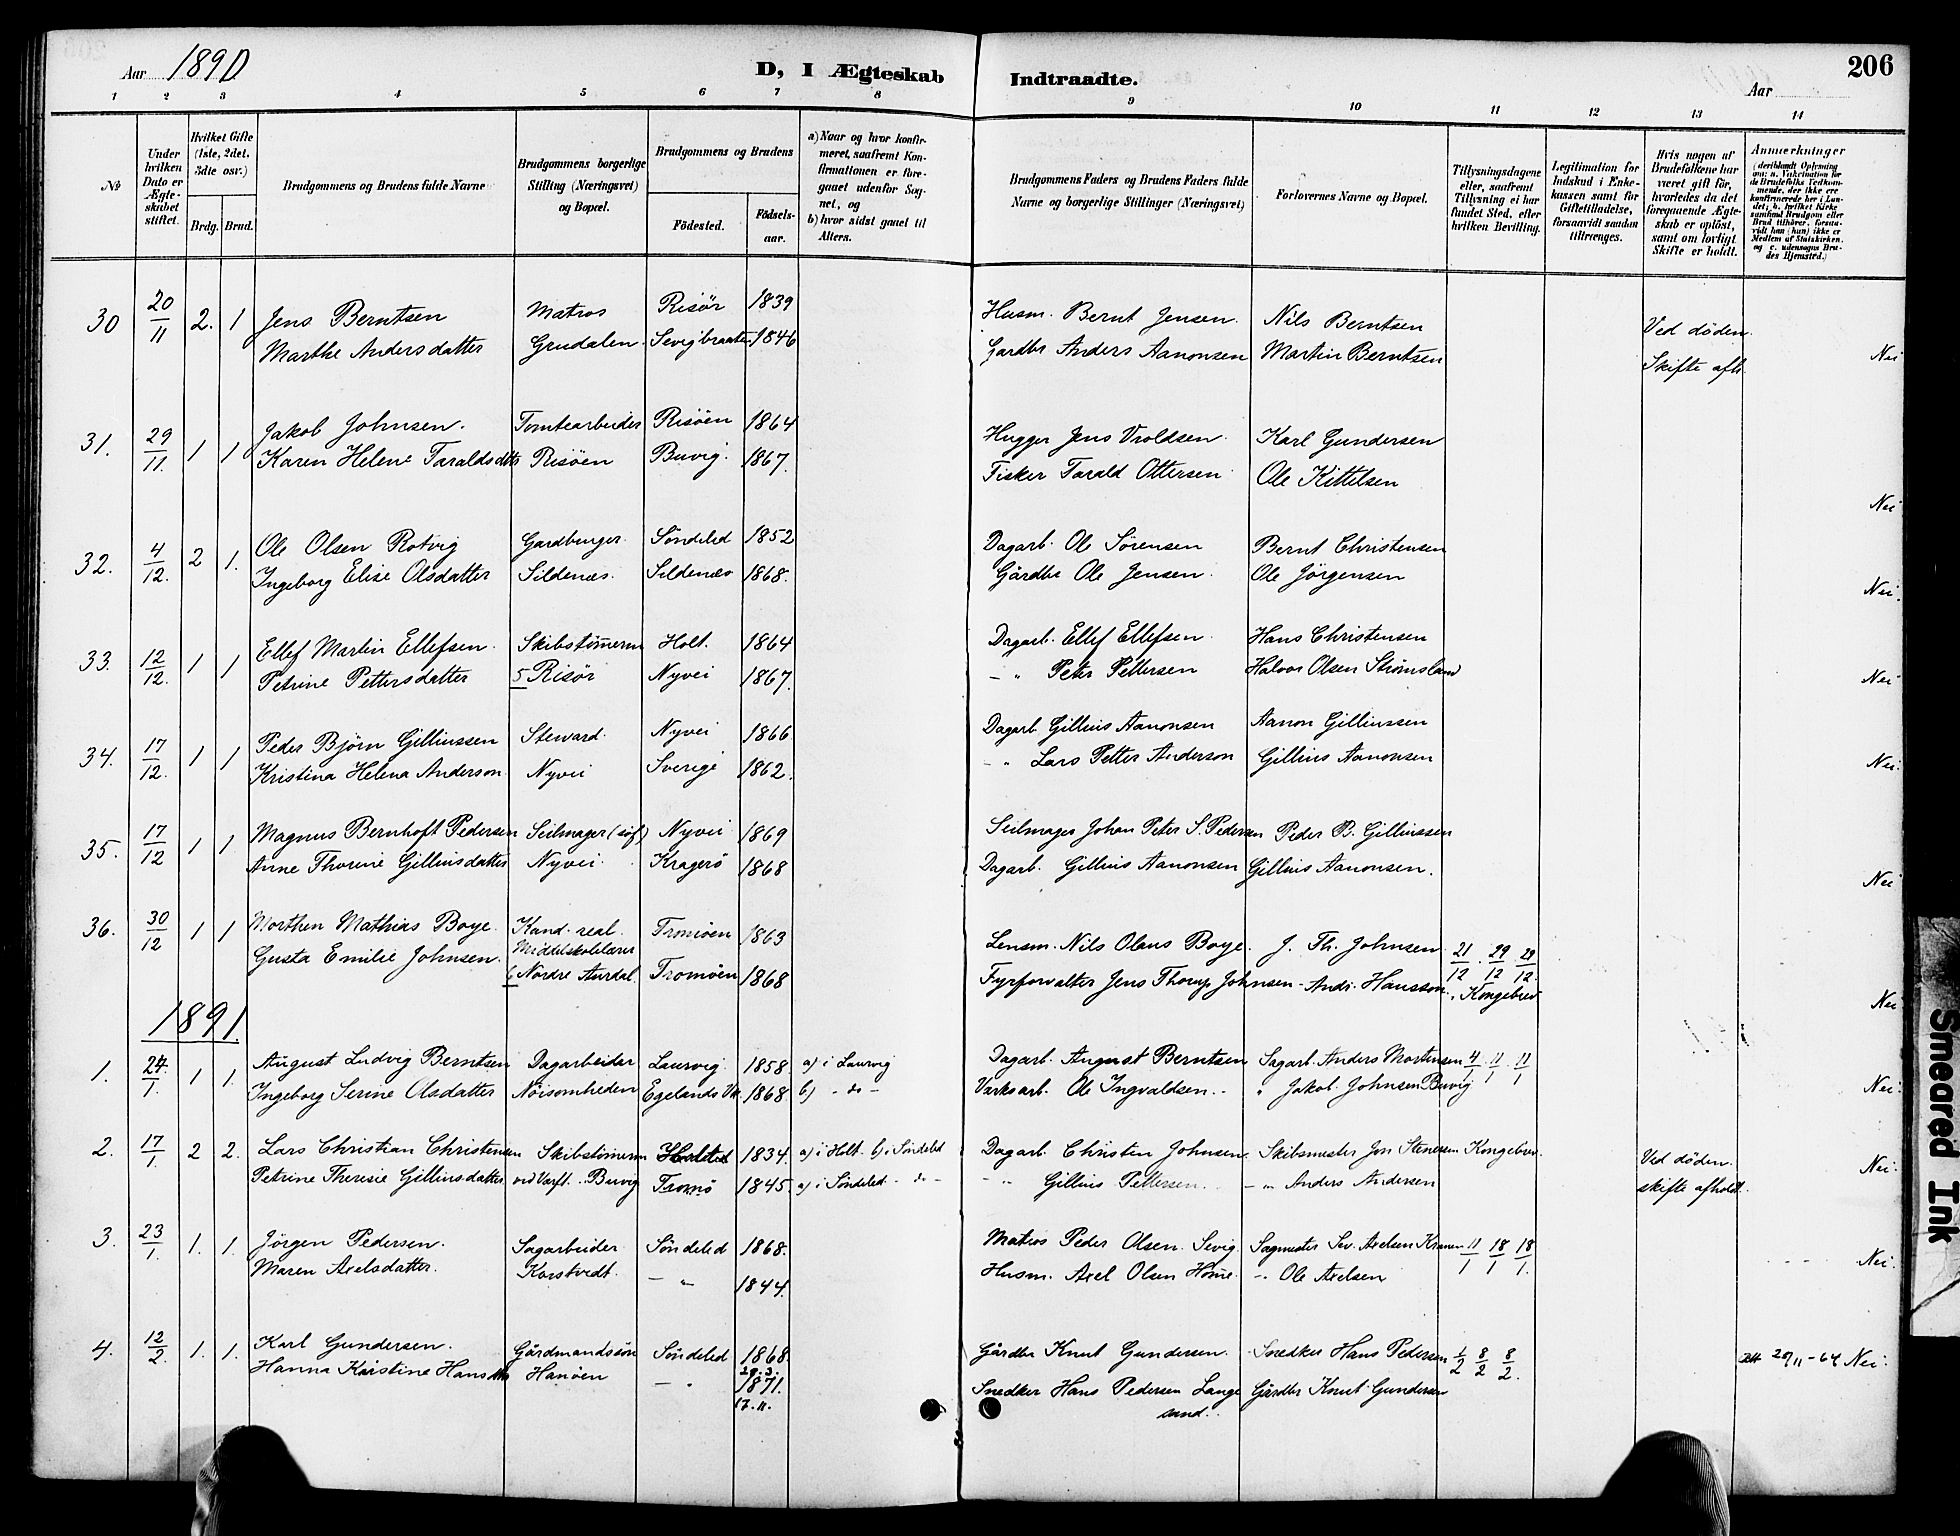 Aar 1890
D, I Ægteskab Indtraadte.
206
Aar
1 2 3 4 5 6 7 8 9 10 11 12 13 14
No
Under hvilken Dato er Ægteskabet stiftet.
Hvilket Gifte (1ste, 2det, 3die osv.)
Brdg. Brud.
Brudgommens og Brudens fulde Navne
Brudgommens borgerlige Stilling (Næringsvei) og Bopæl.
Brudgommens og Brudens
Fødested. Fødselsaar.
a) Naar og hvor konfirmeret, saafremt Konfirmationen er foregaaet udenfor Sognet, og
b) hvor sidst gaaet til Alters.
Brudgommens Faders og Brudens Faders fulde Navne og borgerlige Stillinger (Næringsvei)
Forlovernes Navne og Bopæl.
Tillysningsdagene eller, saafremt Tillysning ei har fundet Sted, efter hvilken Bevilling.
Legitimation for Indskud i Enkekassen samt for Giftetilladelse, forsaavidt saadan tiltrænges.
Hvis nogen af Brudefolkene har været gift før, hvorledes da det foregaaende Ægteskab er opløst, samt om lovligt Skifte er holdt.
Anmærkninger
30 20/11 2. 1 Jens Berntsen Matros Risør 1839 Husm. Bernt Jensen. Nils Berntsen Ved døden.
Marthe Andersdatter Grudalen Sevigbraaten 1846 Gardbr Anders Aanonsen Martin Berntsen Skifte afh. Nei
31. 29/11. 1 1 Jakob Johnsen. Tomtearbeider Risöen 1864 Hugger Jens Vroldsen. Karl Gundersen
Karen Helene Taraldsdtr Risöen Buvig. 1867. Fisker Tarald Ottersen Ole Kittelsen Nei
32. 4/12. 2 1. Ole Olsen Rotvig Gardbruger. Söndeled 1852 Dagarb. Ole Sørensen Bernt Christensen
Ingeborg Elise Olsdatter Sildenæs. Sildenæs 1868. Gårdbr Ole Jensen. Ole Jörgensen Nei.
33. 12/12. 1 1 Ellef Martin Ellefsen. Skibstømerm Holt. 1864 Dagarb. Ellef Ellefsen. Hans Christensen
Petrine Pettersdatter 5 Risör Nyvei 1867. — " Peter Pettersen Halvor Olsen Strømsland Nei
34. 17/12. 1 1 Peder Björn Gilliussen Steward. Nyvei 1866 Dagarb. Gillius Aanonsen Aanon Gilliussen
Kristina Helena Anderson Nyvei Sverige 1862. - " Lars Petter Anderson Gillius Aanonsen Nei.
35. 17/12 1 1 Magnus Bernhoft Pedersen Seilmager (søf) Nyvei 1869 Seilmager Johan Peter S. Pedersen Peder B. Gilliussen
Anne Thorine Gilliusdatter Nyvei. Kragerö 1868 Dagarb. Gillius Aanonsen Gillius Aanonsen. Nei
36. 30/12 1 1 Morthen Mathias Boye. Kand. real. Middelskolelærer Tromöen 1863 Lensm. Nils Olaus Boye. J. Th. Johnsen 21/12. 29/12 29/12.
Gusta Emilie Johnsen. 6 Nordre Aurdal. Tromöen 1868 Fyrforvalter Jens Thorup Johnsen - Andr. Hansson. , Kongebrev Nei
1891.
1. 24/1. 1 1. August Ludvig Berntsen Dagarbeider Laurvig. 1858 a) i Laurvig Dagarb. August Berntsen Sagarb. Anders Mortensen 4/1 11/1. 11/1
Ingeborg Serine Olsdatter Nöisomheden Egelands Vk. 1868 b) - do - Værksarb. Ole Ingvaldsen.. " Jakob Johnsen Buvig Nei.
2. 17/1. 2 2. Lars Christian Christensen Skibstömerm 1834. a) i Holt. b) i Söndeled Dagarb. Christen Johnsen Skibsmester Jon Stenersen Kongebrev. Ved døden.
Petrine Therisie Gilliusdatter ved Værft.. Buvig Tromö 1845. a) i Söndeled - do - - " Gillius Pettersen. - " Anders Andersen skifte afholdt. Nei
3. 23/1. 1. 1. Jörgen Pedersen. Sagarbeider Söndeled 1868. Matros Peder Olsen. Sevig Sagmester Sev. Axelsen Kranen 11/1 18/1 18/1.
Maren Axelsdatter. Korstvedt. — " 1844. Husm. Axel Olsen Home. -. Ole Axelsen Nei.
4. 12/2. 1. 1. Karl Gundersen. Gårdmandssön Söndeled 1868. 29.3. Gårdbr Knut Gundersen. Snedker Hans Pedersen 1/2 8/2 8/2. 20/11 - 64 Nei.
Hanna Kristine Hansdtr Hanöen — " 1871. 17.11. Snedker Hans Pedersen Lange sand.. Gårdbr Knut Gundersen
Smeared Ink